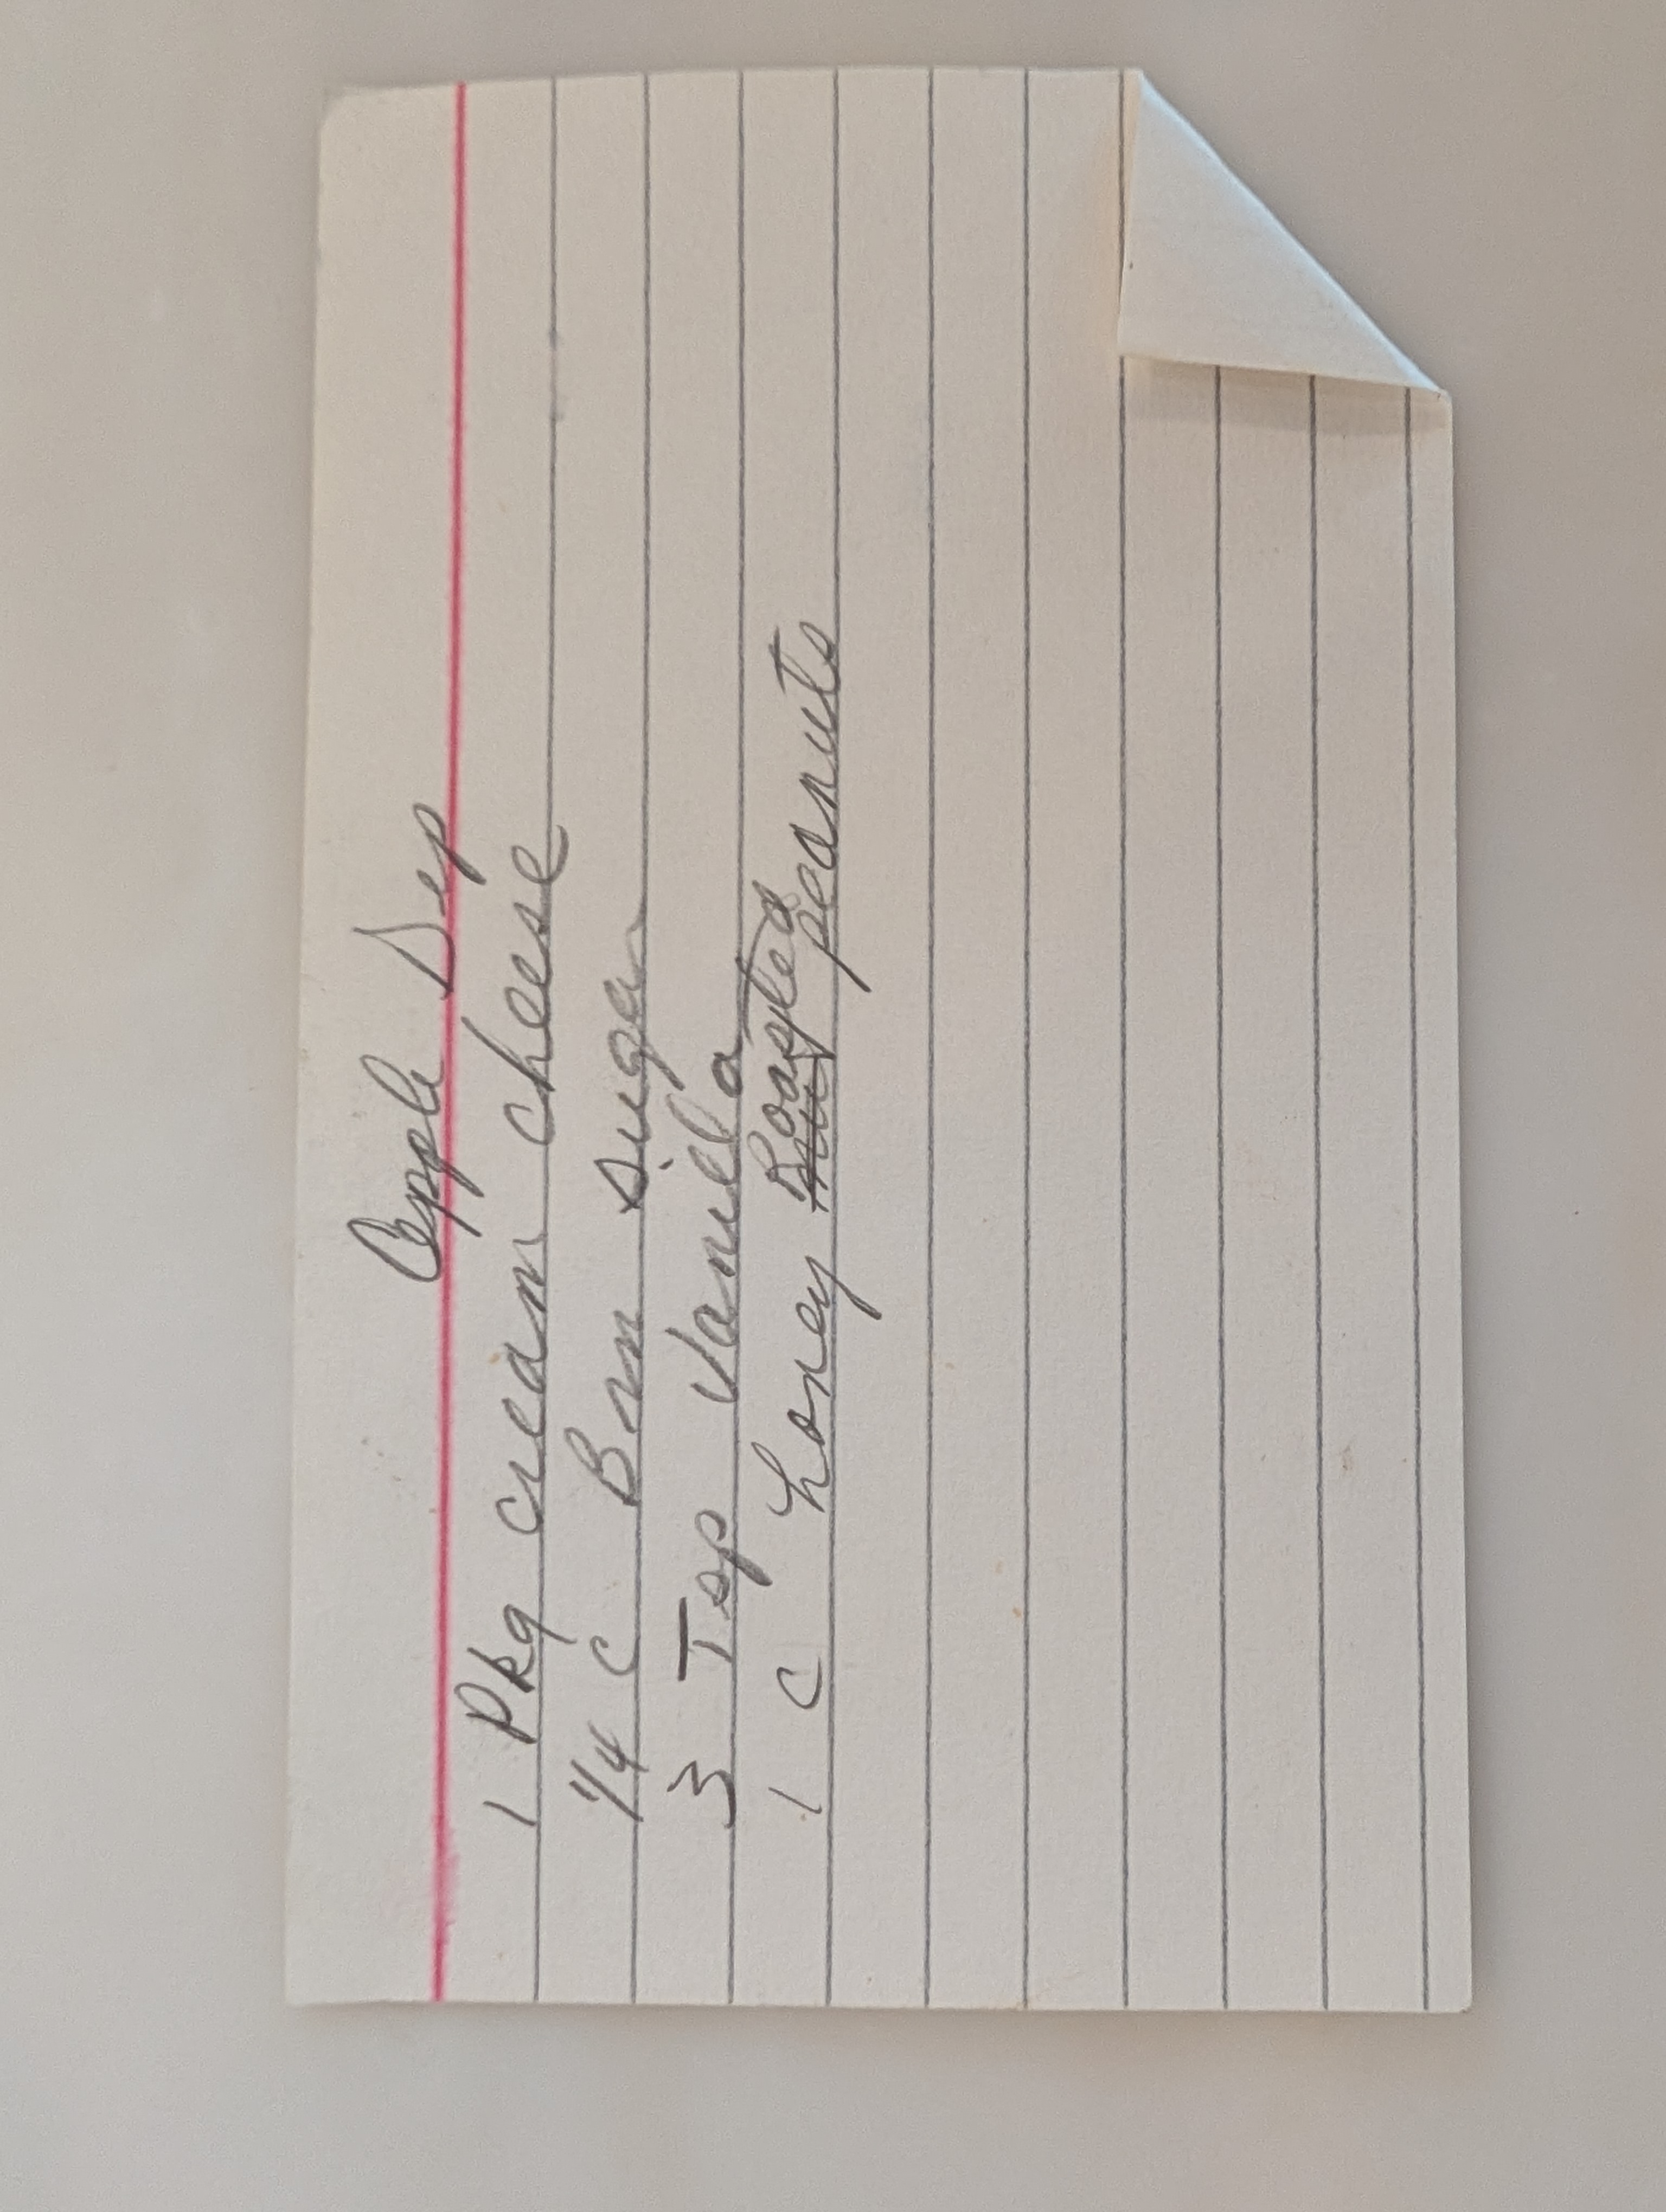 Apple Dip
1 Pkg cream cheese
1/4 C Brn sugar
3 Tsp Vanilla
1 C honey Roasted peanuts